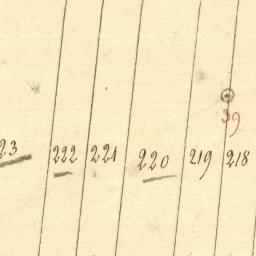 39
23 222 221 220 219 218